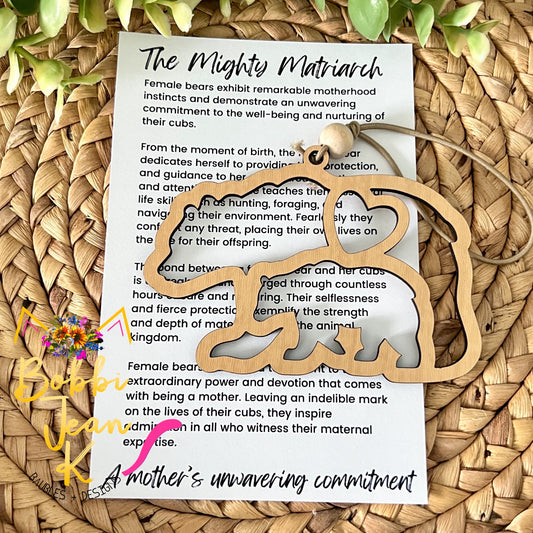 The Mighty Matriarch
Female bears exhibit remarkable motherhood
instincts and demonstrate an unwavering
commitment to the well-being and nurturing of
their cubs.
From the moment of birth, the
dedicates herself to providing protection,
and guidance to her
and attent teaches
life skil as hunting, foraging,
navig their environment. Fearlessly they
conf any threat, placing their own lives on
the for their offspring.
The bond between and her cubs
is forged through countless
hours care and Their selflessness
and fierce protection exemplify the strength
and depth of the animal
kingdom.
Female bears to
extraordinary power and devotion that comes
with being a mother. Leaving an indelible mark
on the lives of their cubs, they inspire
admiration in all who witness their maternal
expertise.
A mother's unwavering commitment
Bobbi
Jean
K
BAUBLES + DESIGNS